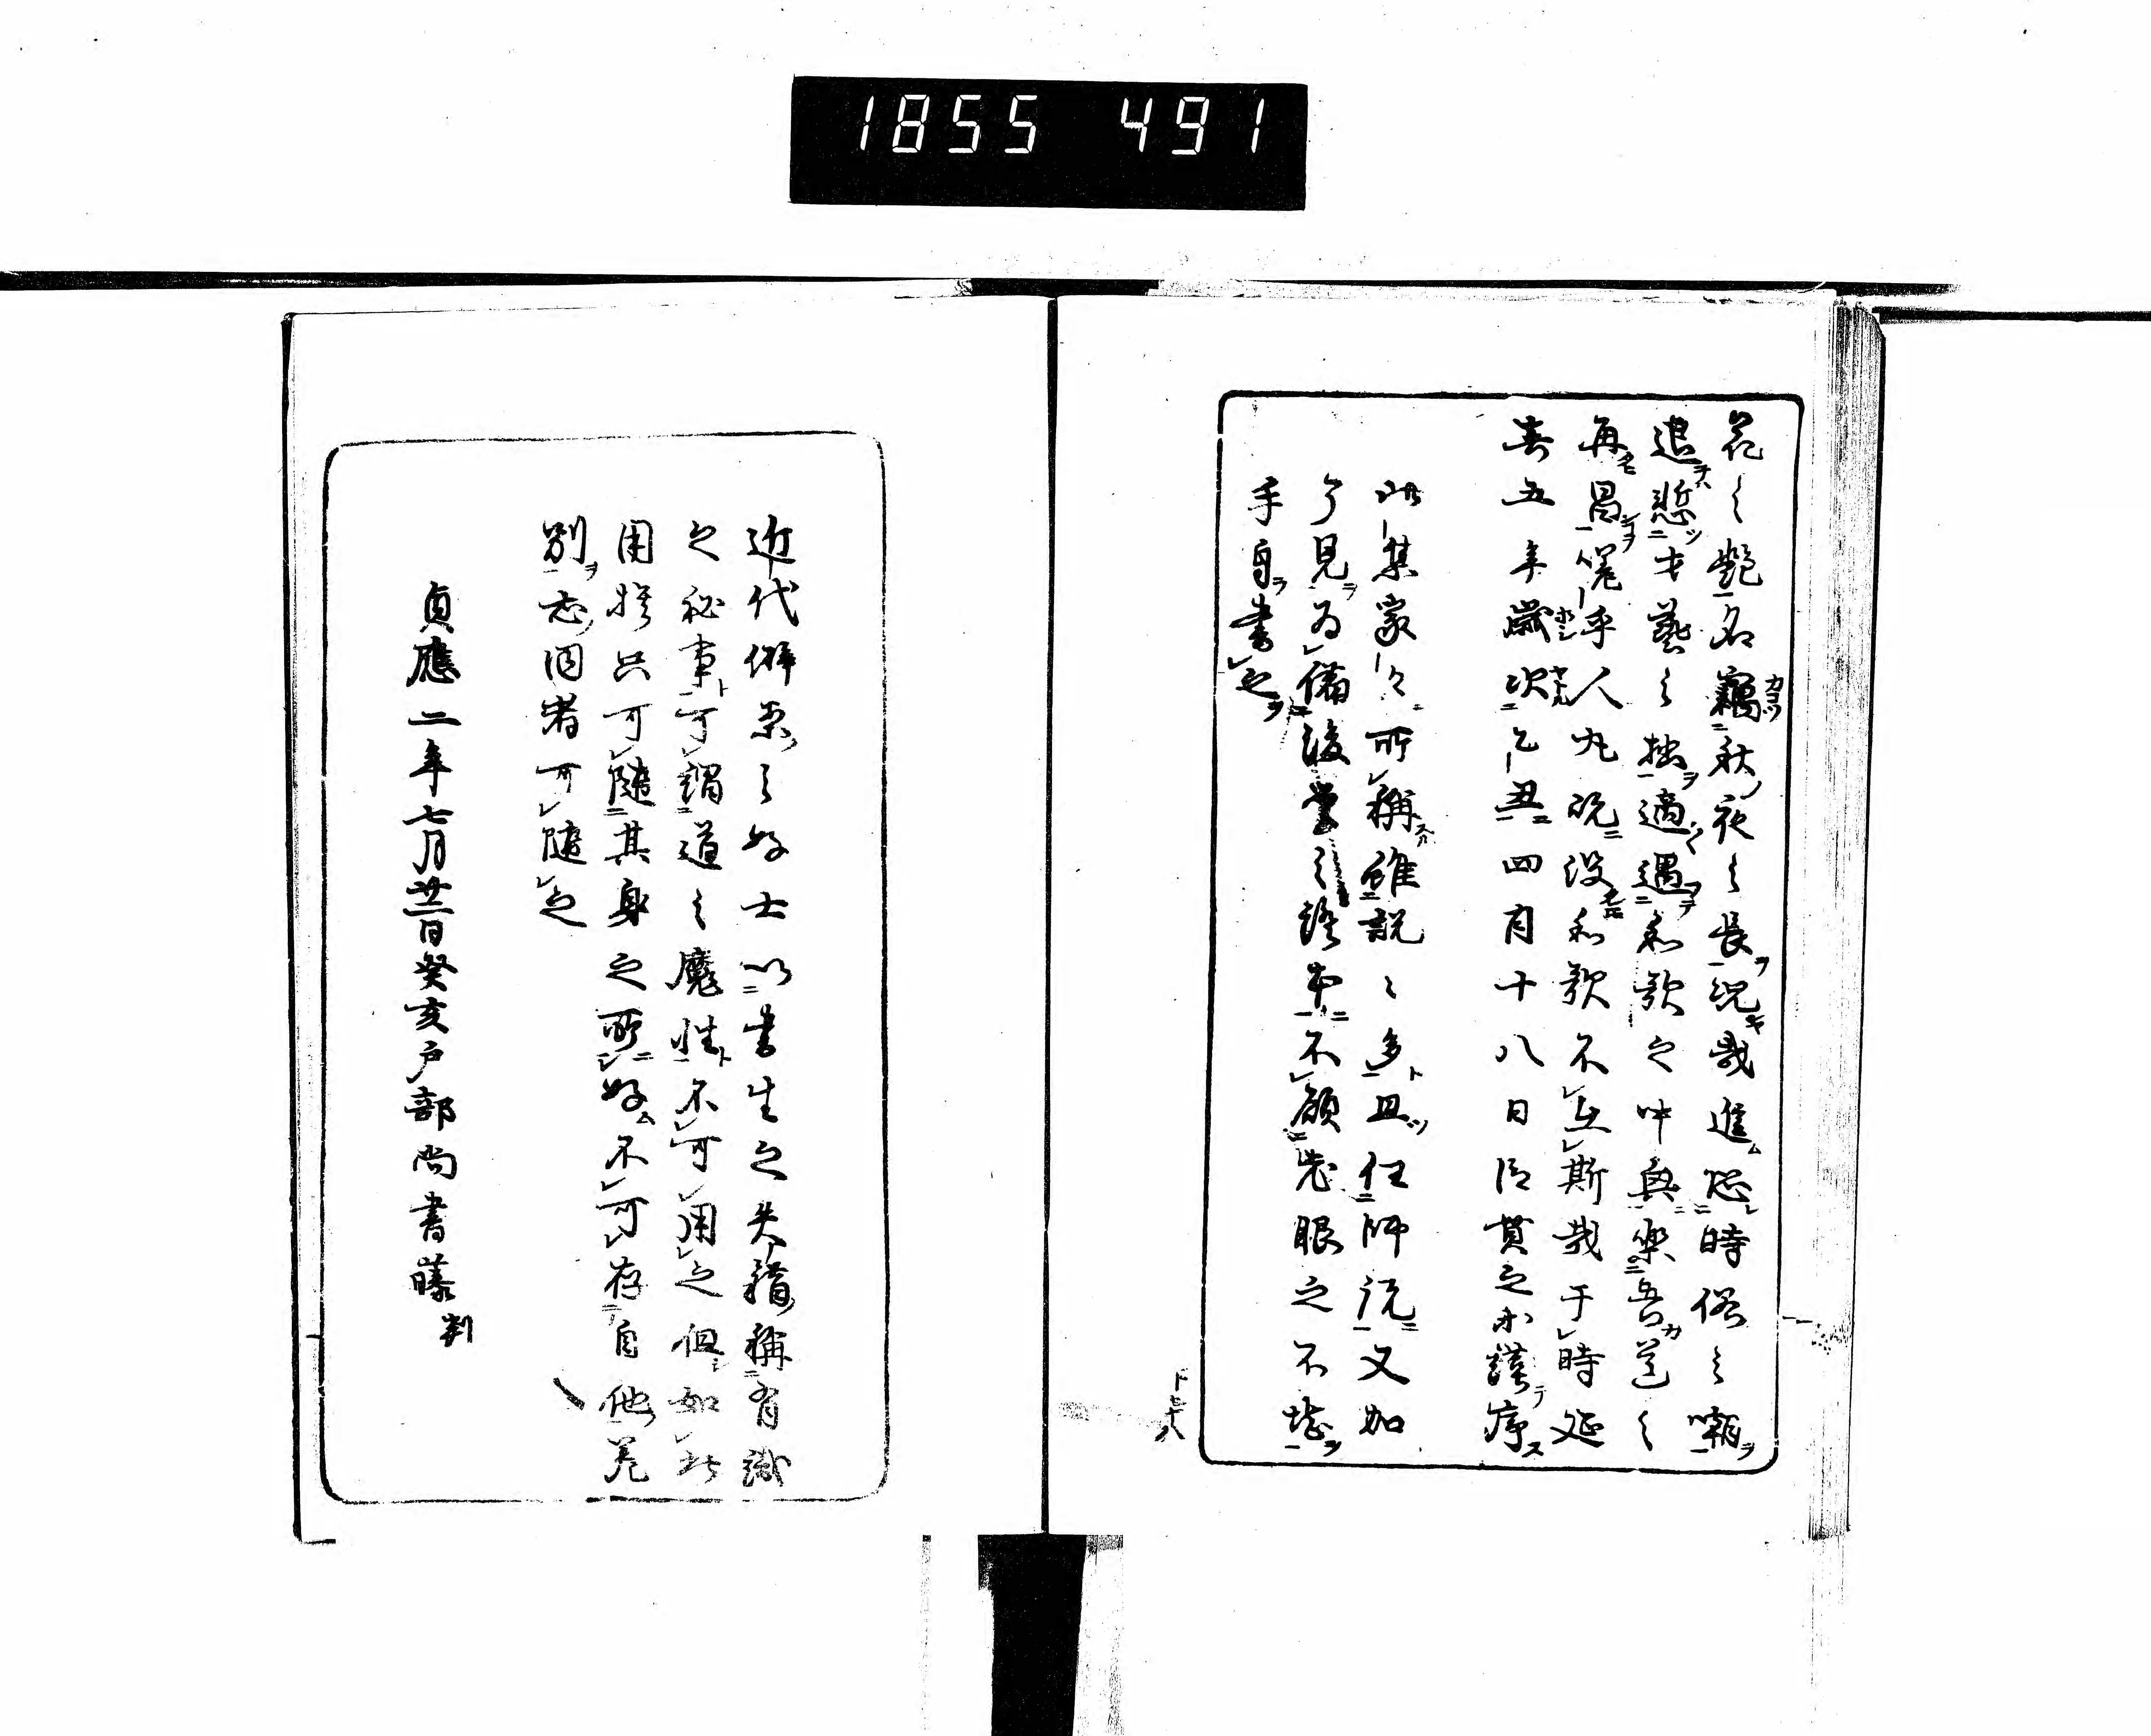 1855 491
花之艶名竊秋夜之長況哉進恐時俗之嘲
退慙才藝之拙適遇和歌之中興以楽吾道之
再昌嗟乎人丸既没和歌不在斯哉于時延
喜五年歳次乙丑四月十八日臣貫之等謹序
此集家々所稱雖説々多且任師説又加
了見為備後学之證本不顧老眼之不堪
手自書之
近代僻案之好士以書生之失錯稱有識
之秘事可謂道之魔性不可用之但如此
用捨只可隨其身之所好不可存自他差
別志同者可隨之
貞應二年七月廿二日癸亥戸部尚書藤 判